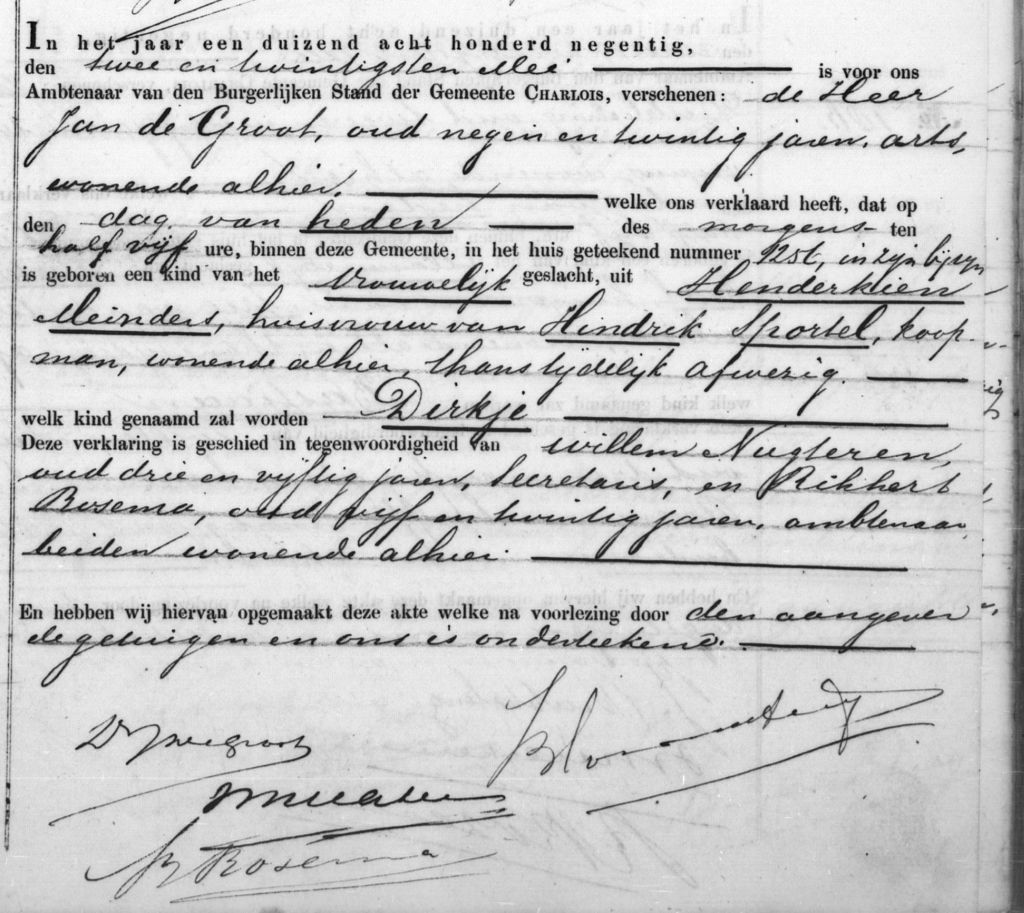 In het jaar een duizend acht honderd negentig,
den twee en twintigsten Mei is voor ons
Ambtenaar van den Burgerlijken Stand der Gemeente CHARLOIS, verschenen: de Heer
Jan de Groot, oud negen en twintig jaren, arts,
wonende alhier. welke ons verklaard heeft, dat op
den dag van heden des morgens ten
half vijf ure, binnen deze Gemeente, in het huis geteekend nummer 125t, in zijn bijzijn
is geboren een kind van het Vrouwelijk geslacht, uit Henderkien
Meinders, huisvrouw van Hindrik Sportel, koop-
man, wonende alhier, thans tijdelijk afwezig.
welk kind genaamd zal worden Dirkje
Deze verklaring is geschied in tegenwoordigheid van Willem Nugteren,
oud drie en vijftig jaren, Secretaris, en Rikkert
Bosema, oud vijf en twintig jaren, ambtenaar
beiden wonende alhier.
En hebben wij hiervan opgemaakt deze akte welke na voorlezing door den aangever
de getuigen en ons is onderteekend.
Dr J de Groot
R Bosema